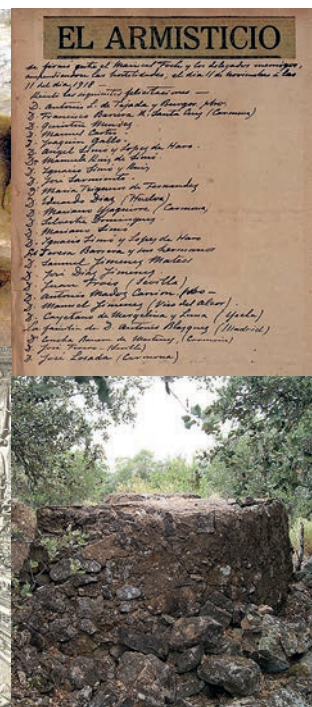 EL ARMISTICIO
se firmó entre el Mariscal Foch y los delegados enemigos,
suspendiéndose las hostilidades, el día 11 de noviembre á las
11 del día, 1918 —
Recibí las siguientes felicitaciones —
D. Antonio L. de Tejada y Burgos, pbro.
Francisco Barrera R. Santa Cruz (Carmona)
Manuel Cortés
Joaquín Gallo
Angel Simó y Lopez de Haro
Manuela Ruiz de Simó
Ignacio Simó y Ruiz
José Sarmiento
María Trigueros de Fernandez
Eduardo Diaz (Huelva)
Mariano (Carmona)
Silvestre Dominguez
Mariano Simó
Ignacio Simó y Lopez de Haro
Teresa Barrera y sus hermanos
Samuel Jimenez Mateos
José Diaz Jimenez
Juan (Sevilla)
Antonio Mados Carrion, pbro —
Manuel Jimenez (Viso del Alcor)
Cayetano de Mergelina y Luna (Yecla)
La familia de D. Antonio Blazquez (Madrid)
Concha de Martinez, (Carmona)
José (Sevilla)
José Losada (Carmona)